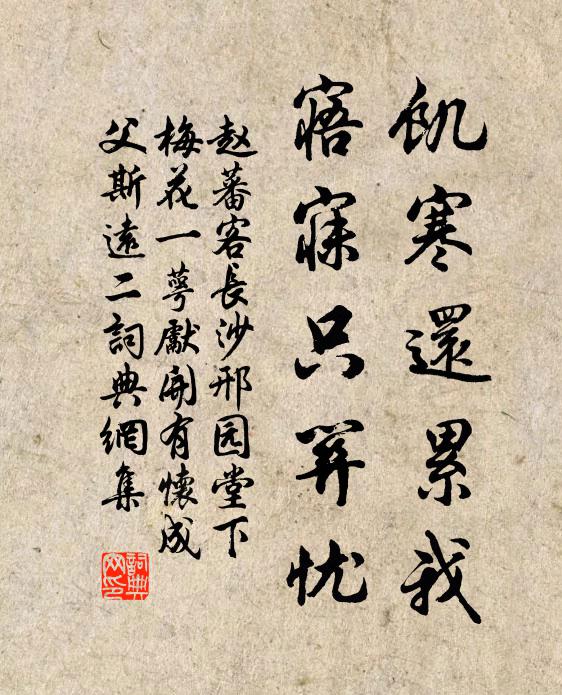 飢寒還累我
寤寐只算忧
赵蕃客長沙邢园堂下
梅花一萼獻開有懷成
父斯遠二詞典網集
詞典
网印